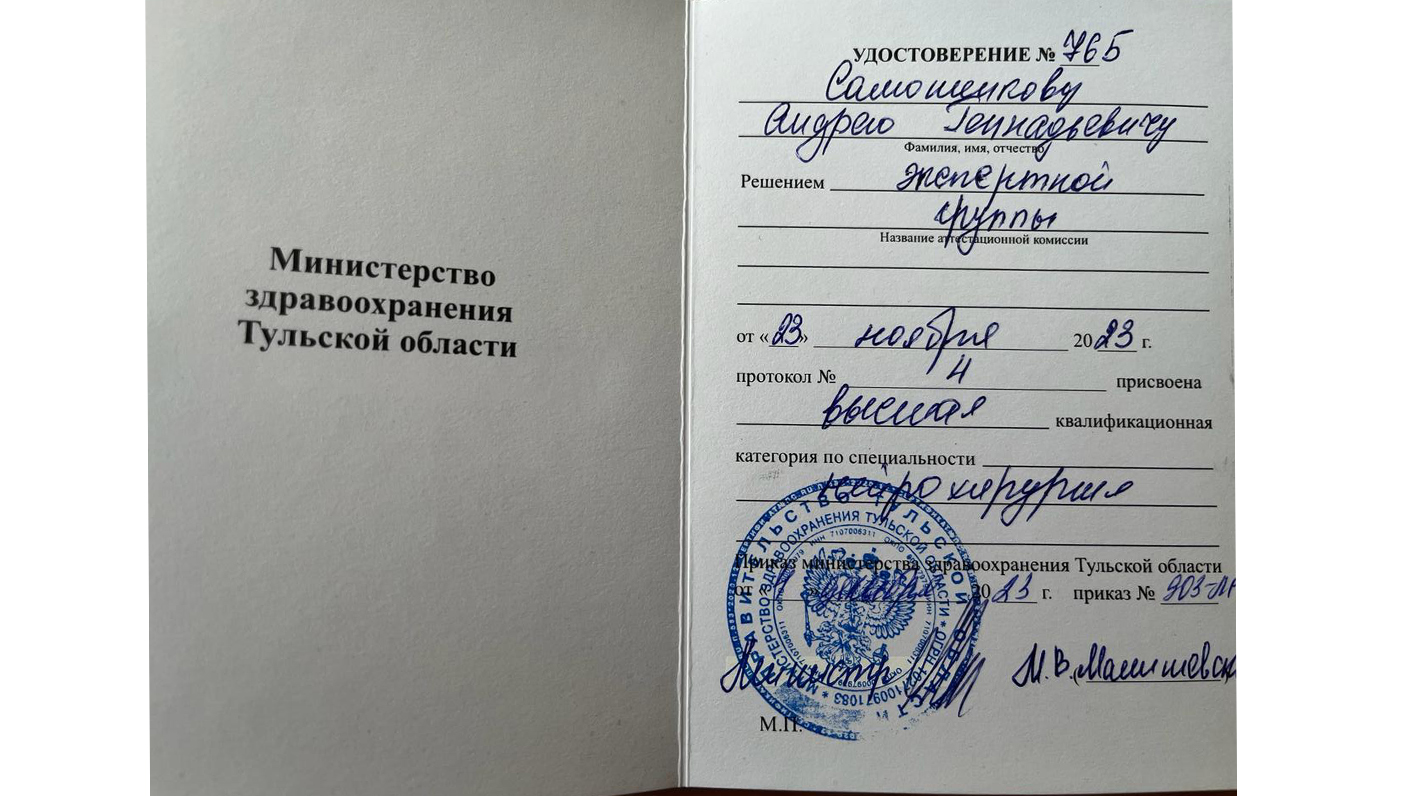 Министерство
здравоохранения
Тульской области
УДОСТОВЕРЕНИЕ № 765
Самошникову
Андрею Геннадьевичу
Фамилия, имя, отчество
Решением экспертной
группы
Название аттестационной комиссии
от «23» ноября 2023 г.
протокол № 4 присвоена
высшая квалификационная
категория по специальности
нейрохирургия
Приказ министерства здравоохранения Тульской области
от « » декабря 2023 г. приказ № 903-
Министр М.В.
М.П.
ПРАВИТЕЛЬСТВО ТУЛЬСКОЙ ОБЛАСТИ
МИНИСТЕРСТВО ЗДРАВООХРАНЕНИЯ ТУЛЬСКОЙ ОБЛАСТИ *
ИНН 7107006311 ОКПО